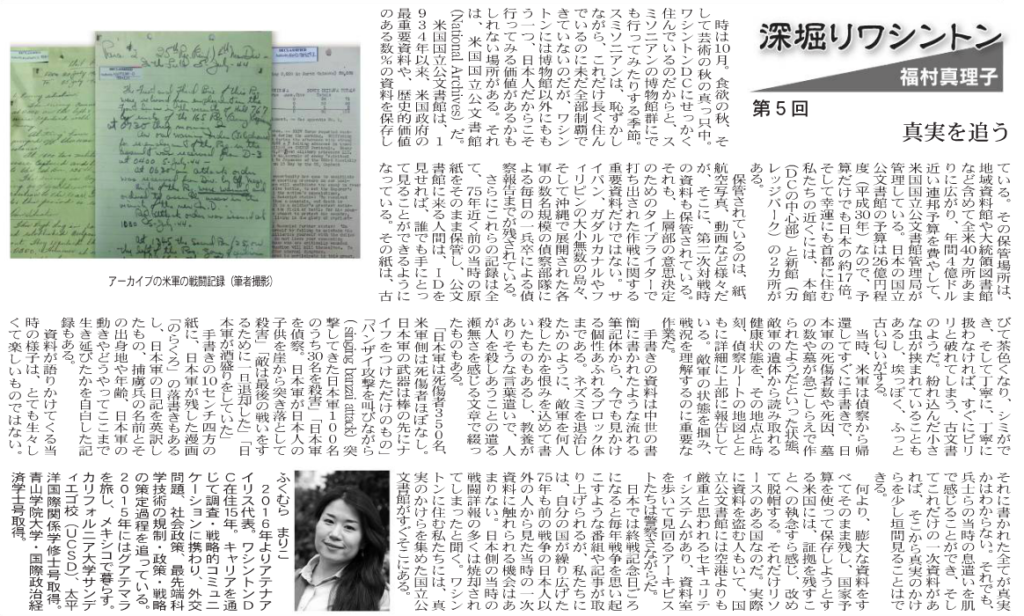 深堀りワシントン
福村真理子
第5回
真実を追う
時は10月。食欲の秋、そ
して芸術の秋の真っ只中。
ワシントンDCにせっかく
住んでいるのだからと、ス
ミソニアンの博物館群にで
も行ってみたりする季節。
スミソニアンは、恥ずかし
ながら、これだけ長く住ん
でいるのに未だ全部制覇で
きていないのだが、ワシン
トンには博物館以外にもも
う一つ、日本人だからこそ
行ってみる価値があるかも
しれない場所がある。それ
は、米国国立公文書館
(National Archives)だ。
米国国立公文書館は、1
934年以来、米国政府の
最重要資料や、歴史的価値
のある数％の資料を保存し
アーカイブの米軍の戦闘記録（筆者撮影）
ている。その保管場所は、
地域資料館や大統領図書館
なども含めて全米4カ所あま
りに広がり、年間4億ドル
近い連邦予算を費やして、
米国国立公文書館管理局が
管理している。日本の国立
公文書館の予算は26億円程
度（平成30年）なので、予
算だけでも日本の約17倍。
そして幸運にも首都に住む
私たちの近くには、本館
（DCの中心部）と新館（カ
レッジパーク）の2カ所が
ある。
保管されているのは、紙、
航空写真、動画など様々だ
が、そこに、第二次大戦時
の資料も保管されている。
それも、上層部の意思決定
のためのタイプライターで
打ち出された作戦に関する
重要資料だけではない。サ
イパン、ガダルカナルやフ
ィリピンの大小無数の島々、
そして沖縄で展開された各
軍の数名規模の偵察部隊に
よる毎日の一兵卒による偵
察報告までが残されている。
さらにこれらの記録は全
て、75年近く前の当時の原
紙をそのまま保管し、公文
書館に来る人間は、IDを
見せれば、誰でも手にとっ
て見ることができるように
なっている。その紙は、古
びて茶色くなり、シミがで
き、そして丁寧に、丁寧に
扱わなければ、すぐにピリ
リと破れてしまう、古文書
のようだ。紛れ込んだ小さ
な虫が挟まれていることも
あるし、埃っぽく、ふっと
古い匂いがする。
当時、米軍は偵察から帰
還してすぐに手書きで、日
本軍の死傷者数や死因、墓
の数や墓が急ごしらえで作
られたようだといった状態、
敵軍の遺体から読み取れる
健康状態を、その地点と時
刻、偵察ルートの地図とと
もに詳細に上部に報告して
いる。敵軍の状態を掴み、
戦況を理解するのに重要な
作業だ。
手書きの資料は中世の書
簡に書かれたような流れる
筆記体から、今でも見かけ
る個性あふれるブロック体
まである。ネズミを退治し
たかのように、敵軍を何人
殺したとか恨みを込めて書
いたものもあるし、教養が
ありそうな言葉遣いで、人
が人を殺しあうことの遣る
瀬無さを感じる文章で綴っ
たものもある。
「日本軍は死傷者350名、
米軍側は死傷者ほぼなし。
日本軍の武器は棒の先にナ
イフをつけただけのもの」
「バンザイ攻撃を叫びながら
(singing banzai attack)
突撃してきた日本軍100名
のうち30名を殺害」「日本軍
を偵察。日本軍が日本人の
子供を崖から突き落として
殺害」「敵は最後の戦いをす
るために一旦退却した」「日
本軍が酒盛りをしていた」
手書きの10センチ四方の
紙に、日本軍が残した漫画
「のらくろ」の落書きもある
し、日本軍の日記を英訳し
たもの、捕虜兵の名前とそ
の出身地や年齢、日本軍の
動きやどうやってここまで
生き延びたかを自白した記
録もある。
資料が語りかけてくる当
時の様子は、とても生々し
くて楽しいものではない。
それに書かれた全てが真実
かはわからない。それでも、
兵士らの当時の息遣いを肌
で感じることができ、そし
てこれだけの一次資料があ
れば、そこから真実のかけ
らを少し垣間見ることはで
きる。
何より、膨大な資料をす
べてそのまま残し、国家予
算を使って保存しようとす
る米国には、証拠を残すこ
とへの執念すら感じ、改め
て脱帽する。それだけリソ
ースのある国なのだ。実際
に資料を盗む人もいて、国
立公文書館には空港よりも
厳重と思われるセキュリテ
ィシステムがあり、資料室
を歩いて見回るアーキビス
トたちは警察さながらだ。
日本では終戦記念日ごろ
になると毎年戦争を思い起
こすような番組や記事が取
り上げられるが、私たちに
は、自分の国が繰り広げた
75年も前の戦争の日本人以
外の人から見た当時の一次
資料に触れられる機会はあ
まりない。日本側の当時の
戦闘詳報の多くは焼却され
てしまったと聞く。ワシン
トンに住む私たちには、真
実のかけらを集めた国立公
文書館がすぐそこにある。
ふくむら まりこ
2016年よりアテナア
イリサーチ代表。ワシントンD
C在住15年。キャリアを通
じて調査・戦略的コミュニ
ケーションに携わり、外交
問題、社会政策、最先端科
学技術の規制・政策・戦略
の策定過程を追っている。
2015年にはグアテマラ
を旅し、メキシコで暮らす。
カリフォルニア大学サンデ
ィエゴ校（UCSD）、太平
洋国際関係学修士号取得。
青山学院大学・国際政治経
済学士号取得。